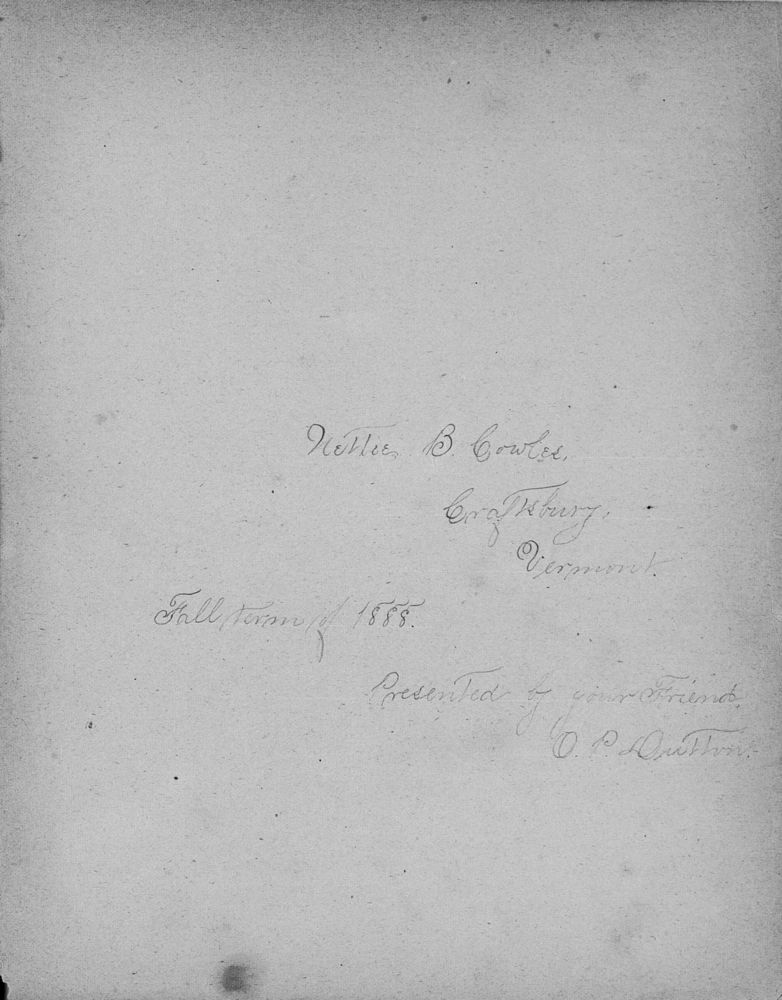 Nettie B. Cowles,
Craftsbury,
Vermont.
Fall term of 1888.
Presented by your Friend,
O. P. Dutton.